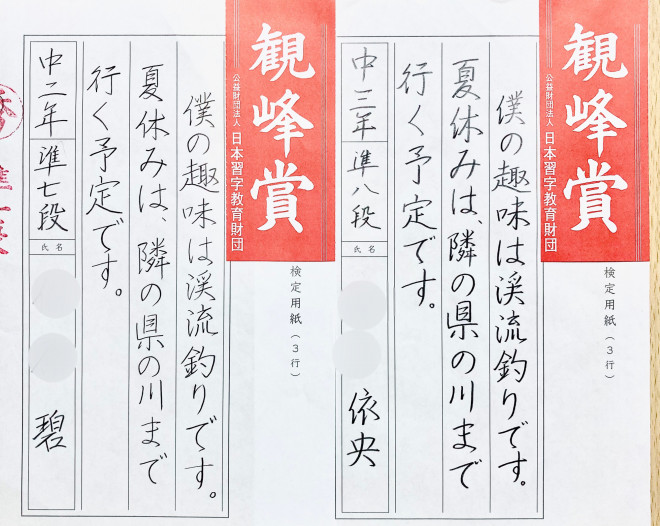 観峰賞
公益財団法人 日本習字教育財団
検定用紙（3行）
僕の趣味は渓流釣りです。
夏休みは、隣の県の川まで
行く予定です。
中三年 準八段
氏名
依央
観峰賞
公益財団法人 日本習字教育財団
検定用紙（3行）
僕の趣味は渓流釣りです。
夏休みは、隣の県の川まで
行く予定です。
中二年 準七段
氏名
碧